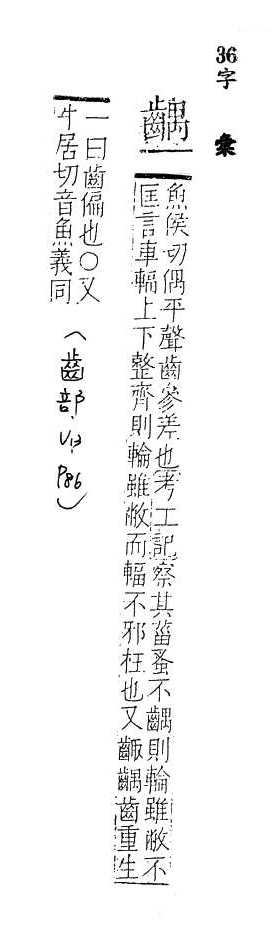 36字彙
齵
魚侯切偶平聲齒參差也考工記察其菑蚤不齵則輪雖敝不
匡言車輻上下整齊則輪雖敝而輻不邪枉也又齱齵齒重生
一曰齒偏也○又
牛居切音魚義同
(齒部.
P86)